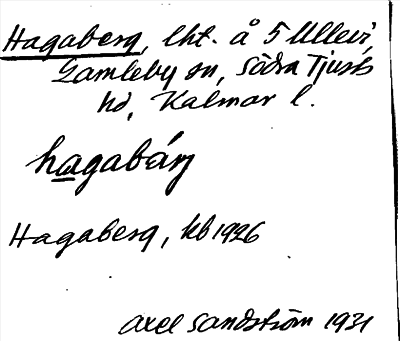 Hagaberg, lht. å 5 Ullevi,
Gamleby sn, Södra Tjusts
hd, Kalmar l.
hagabárj
Hagaberg, kb 1926
Axel Sandström 1931